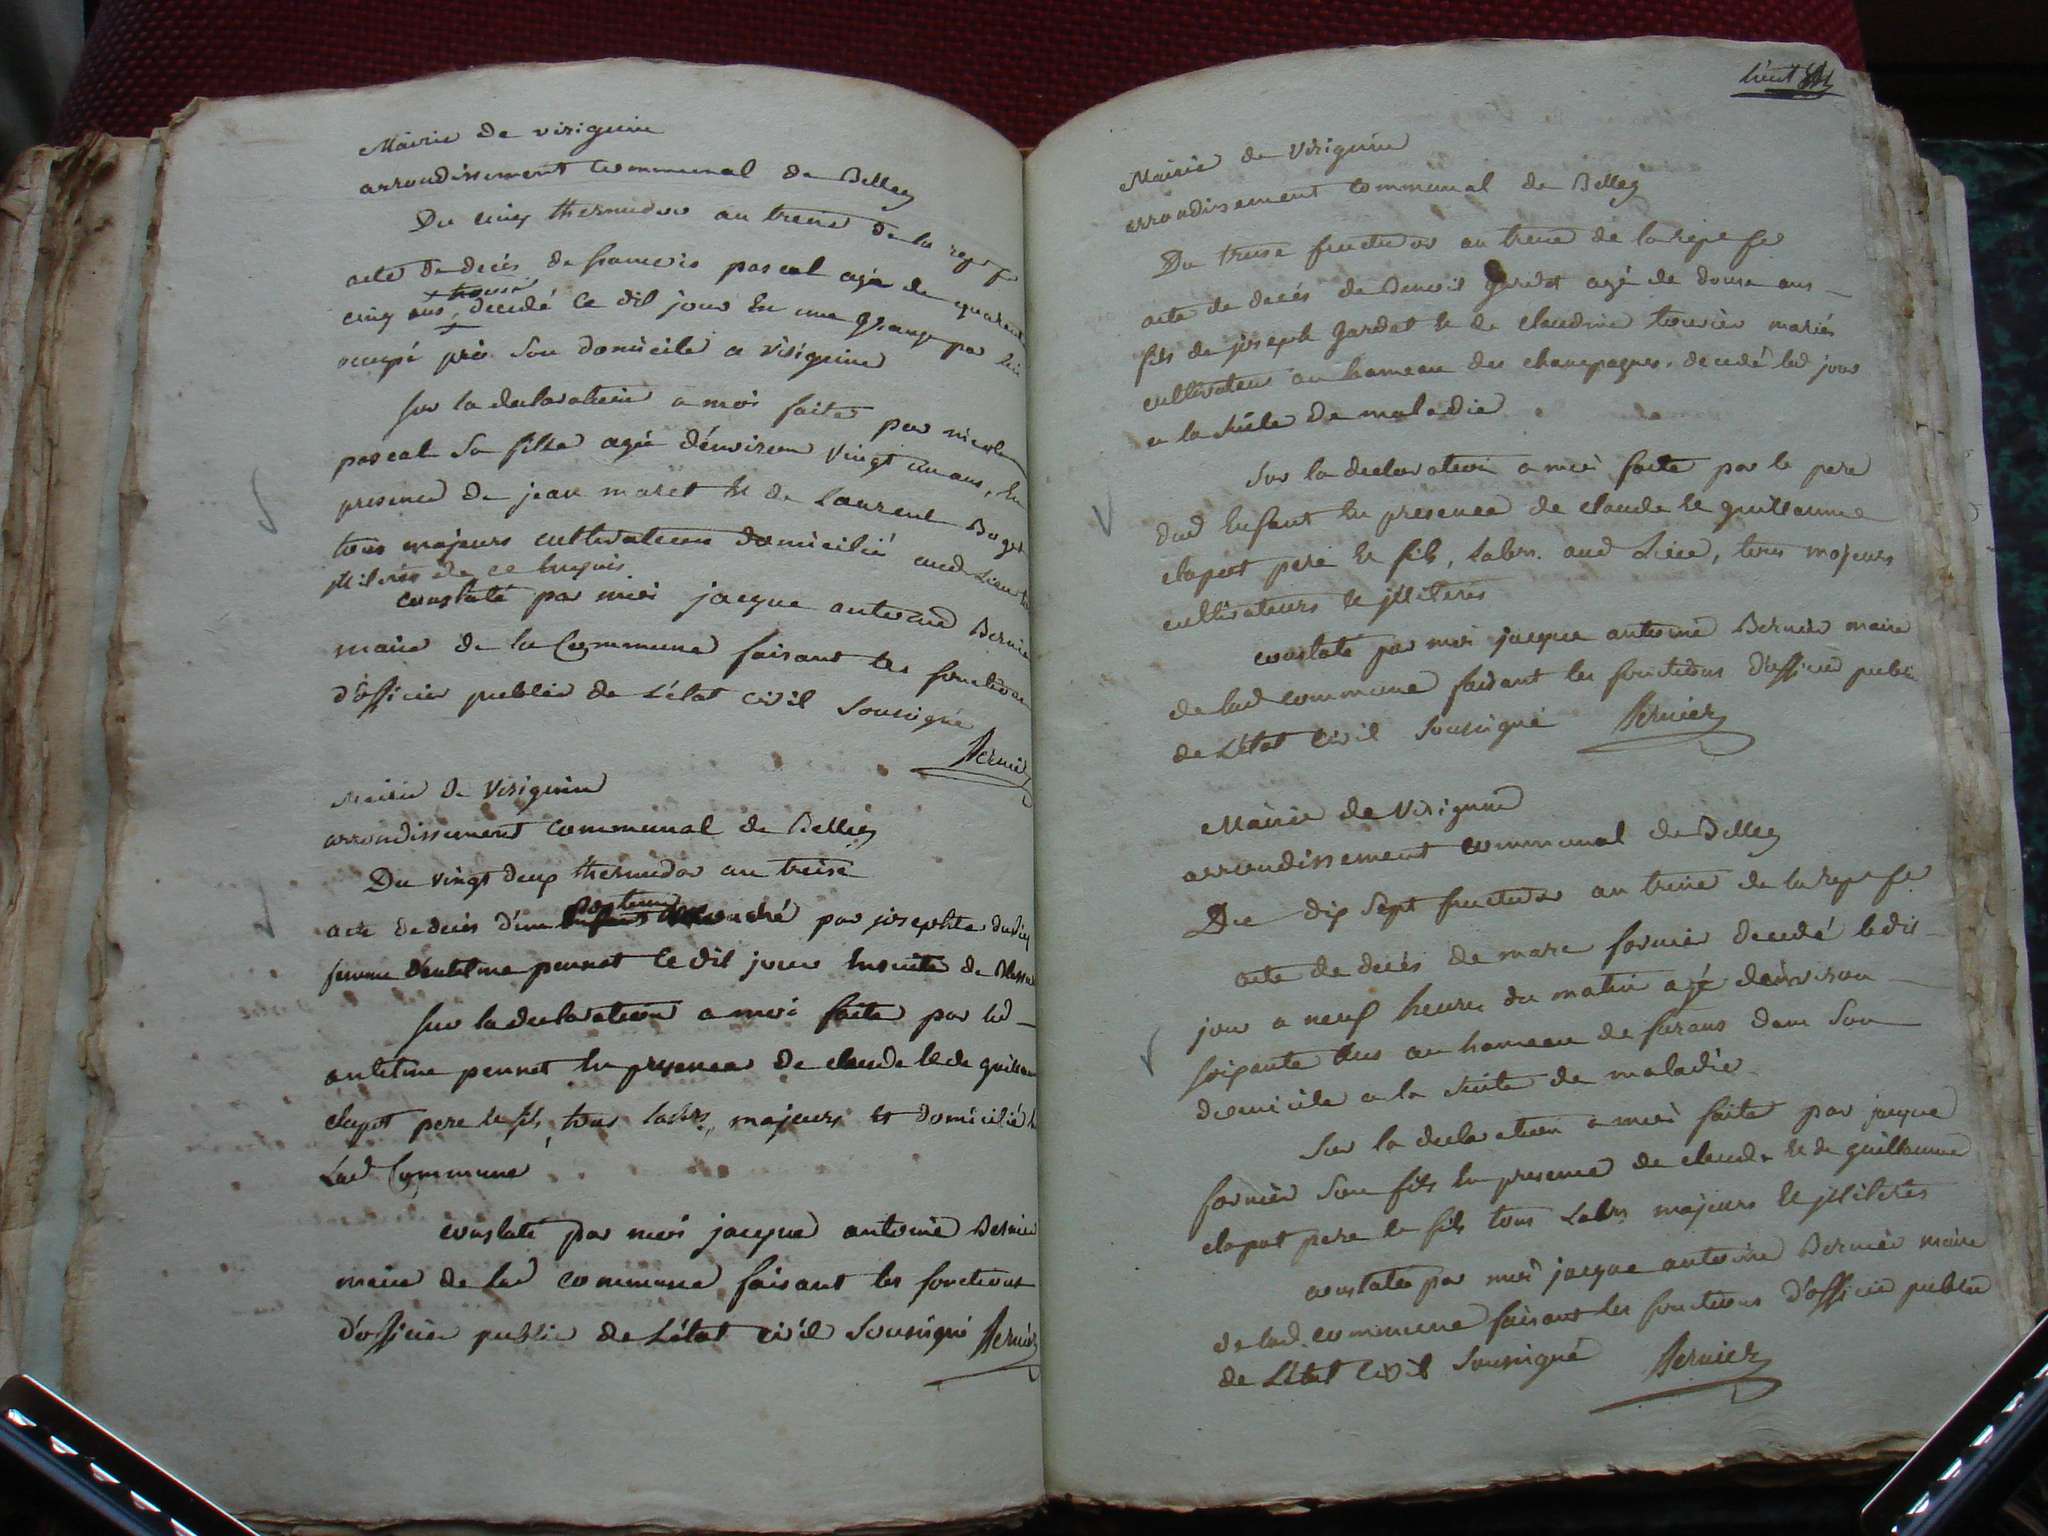 Mairie de virignin
arrondissement Communal de Belley
Du cinq thermidor an treise de la rep fe
acte de decés de francois pascal agé de quarante
trouvé
cinq ans, decedé ce dit jour en une grange par lui
ocupé prés son domicile a virignin
sur la declaration a moi faite par nicolas
pascal sa fille agée d'environ vingt un ans, en
presence de jean maret et de Laurent Boget
tous majeurs cultivateurs domicilié aud Lieu et
jlliterés de ce enquis
constaté par moi jacque antoine Bernier
maire de la Commune faisant les fonctions
d'officier public de L'état civil soussigné
Bernier
Mairie de Virignin
arrondissement communal de Belley
Du vingt deux thermidor an treise
acte de decés d'un par josephte
femme d'antelme pennet ce dit jour ensuite de
sur la declaration a moi faite par led
antelme pennet en presence de claude et de guillaume
clapot pere et fils, tous labrs, majeurs et domicilié en
Lad Commune
constaté par moi jacque antoine Bernier
maire de lad commune faisant les fonctions
d'officier public de L'état civil soussigné Bernier
Mairie de Virignin
arrondissement communal de Belley
Du treise fructidor an treise de la rep fe
acte de decés de Benoit Gardet agé de douse ans
fils de joseph gardet et de claudine mariés
cultivateurs au hameau des champagnes, decedé led jour
a la suite de maladie
Sur la declaration a moi faite par le pere
dud enfant en presence de claude et guillaume
clapot pere et fils, Labrs. aud Lieu, tous majeurs
cultivateurs et jlliterés
constaté par moi jacque antoine Bernier maire
de lad commune faisant les fonctions d'officier public
de L'état civil soussigné Bernier
Mairie de Virignin
arrondissement communal de Belley
Du dix sept fructidor an treise de la rep fe
acte de decés de marc fornier decedé le dit
jour a neuf heures du matin agé d'environ
soixante ans au hameau de furans dans son
domicile a la suite de maladie
Sur la declaration a moi faite par jacque
fornier son fils en presence de claude et de guillaume
clapot pere et fils tous Labrs majeurs et jlliterés
constaté par moi jacque antoine Bernier maire
de lad. commune faisant les fonctions d'officier public
de L'état civil soussigné Bernier